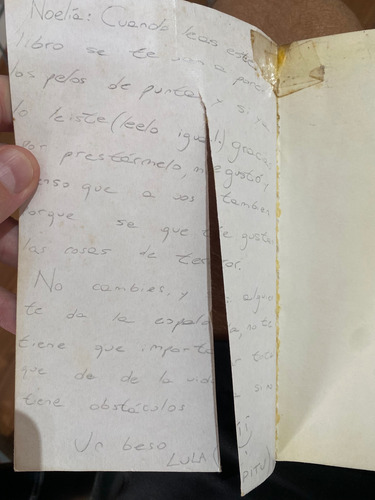 Noelia: Cuando leas este
libro se te van a parar
los pelos de punta y si ya
lo leiste (leelo igual) gracias
por prestármelo, me gustó,
pienso que a vos tambien
porque se que te gustan
las cosas de terror.
No cambies, y si alguien
te da la espalda, no te
tiene que importar
que de de la vida sin
tiene obstáculos !!
Un beso
LULA (PITU)